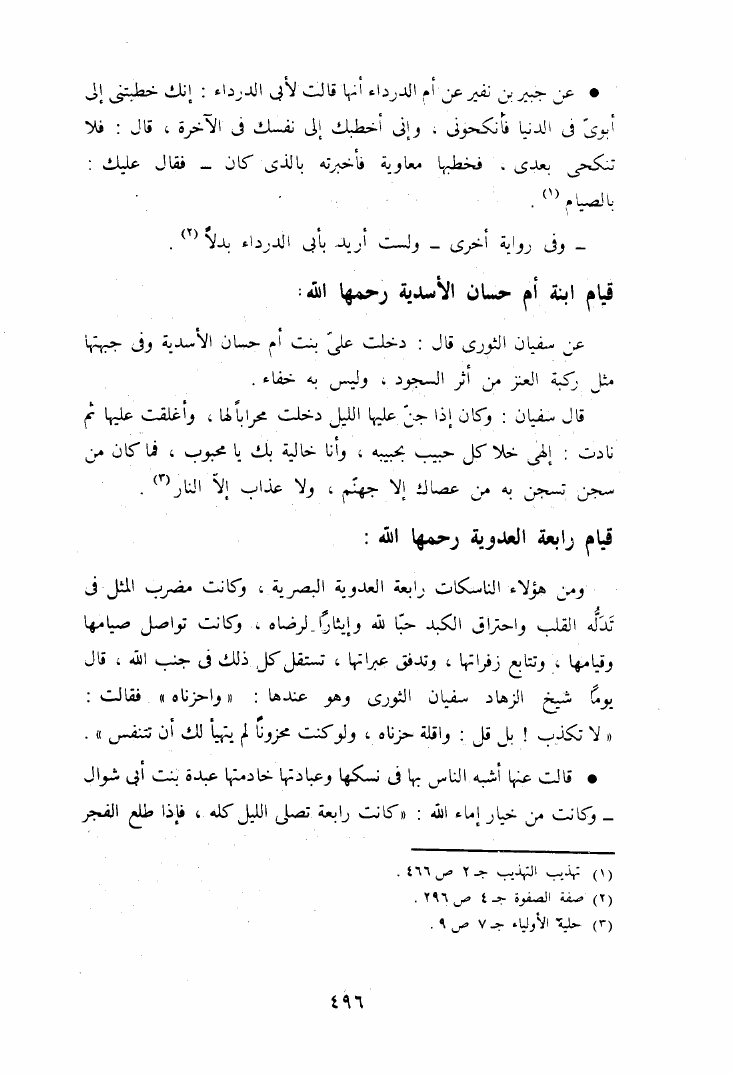 • عن جبير بن نفير عن أم الدرداء أنها قالت لأبى الدرداء : إنك خطبتنى إلى
أبوىّ فى الدنيا فأنكحونى ، وإنى أخطبك إلى نفسك فى الآخرة ، قال : فلا
تنكحى بعدى . فخطبها معاوية فأخبرته بالذى كان – فقال عليك :
بالصيام (١) .
– وفى رواية أخرى – ولست أريد بأبى الدرداء بدلاً (٢) .
قيام ابنة أم حسان الأسدية رحمها الله :
عن سفيان الثورى قال : دخلت علىّ بنت أم حسان الأسدية وفى جبهتها
مثل ركبة العنز من أثر السجود ، وليس به خفاء .
قال سفيان : وكان إذا جنّ عليها الليل دخلت محراباً لها ، وأغلقت عليها ثم
نادت : إلهى خلا كل حبيب بحبيبه ، وأنا خالية بك يا محبوب ، فما كان من
سجن تسجن به من عصاك إلا جهنّم ، ولا عذاب إلاّ النار (٣) .
قيام رابعة العدوية رحمها الله :
ومن هؤلاء الناسكات رابعة العدوية البصرية ، وكانت مضرب المثل فى
تَدَلُّه القلب واحتراق الكبد حبّا لله وإيثاراً لرضاه ، وكانت تواصل صيامها
وقيامها ، وتتابع زفراتها ، وتدفق عبراتها ، تستقل كل ذلك فى جنب الله ، قال
يوماً شيخ الزهاد سفيان الثورى وهو عندها : « واحزناه » فقالت :
« لا تكذب ! بل قل : واقلة حزناه ، ولو كنت محزوناً لم يتهيأ لك أن تتنفس » .
• قالت عنها أشبه الناس بها فى نسكها وعبادتها خادمتها عبدة بنت أبى شوال
– وكانت من خيار إماء الله : «كانت رابعة تصلى الليل كله ، فإذا طلع الفجر
(١) تهذيب التهذيب جـ ٢ ص ٤٦٦ .
(٢) صفة الصفوة جـ ٤ ص ٢٩٦ .
(٣) حلية الأولياء جـ ٧ ص ٩ .
٤٩٦